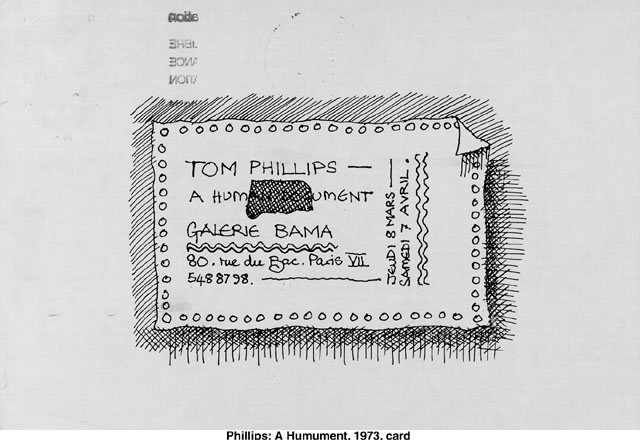 TOM PHILLIPS —
A HUM UMENT
GALERIE BAMA
80. rue du Bac. Paris VII
5488798.
JEUDI 8 MARS —
SAMEDI 7 AVRIL.
Phillips: A Humument, 1973, card